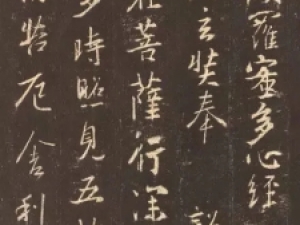 羅蜜多心經
玄奘奉 詔
菩薩行深
多時照見五
苦厄舍利